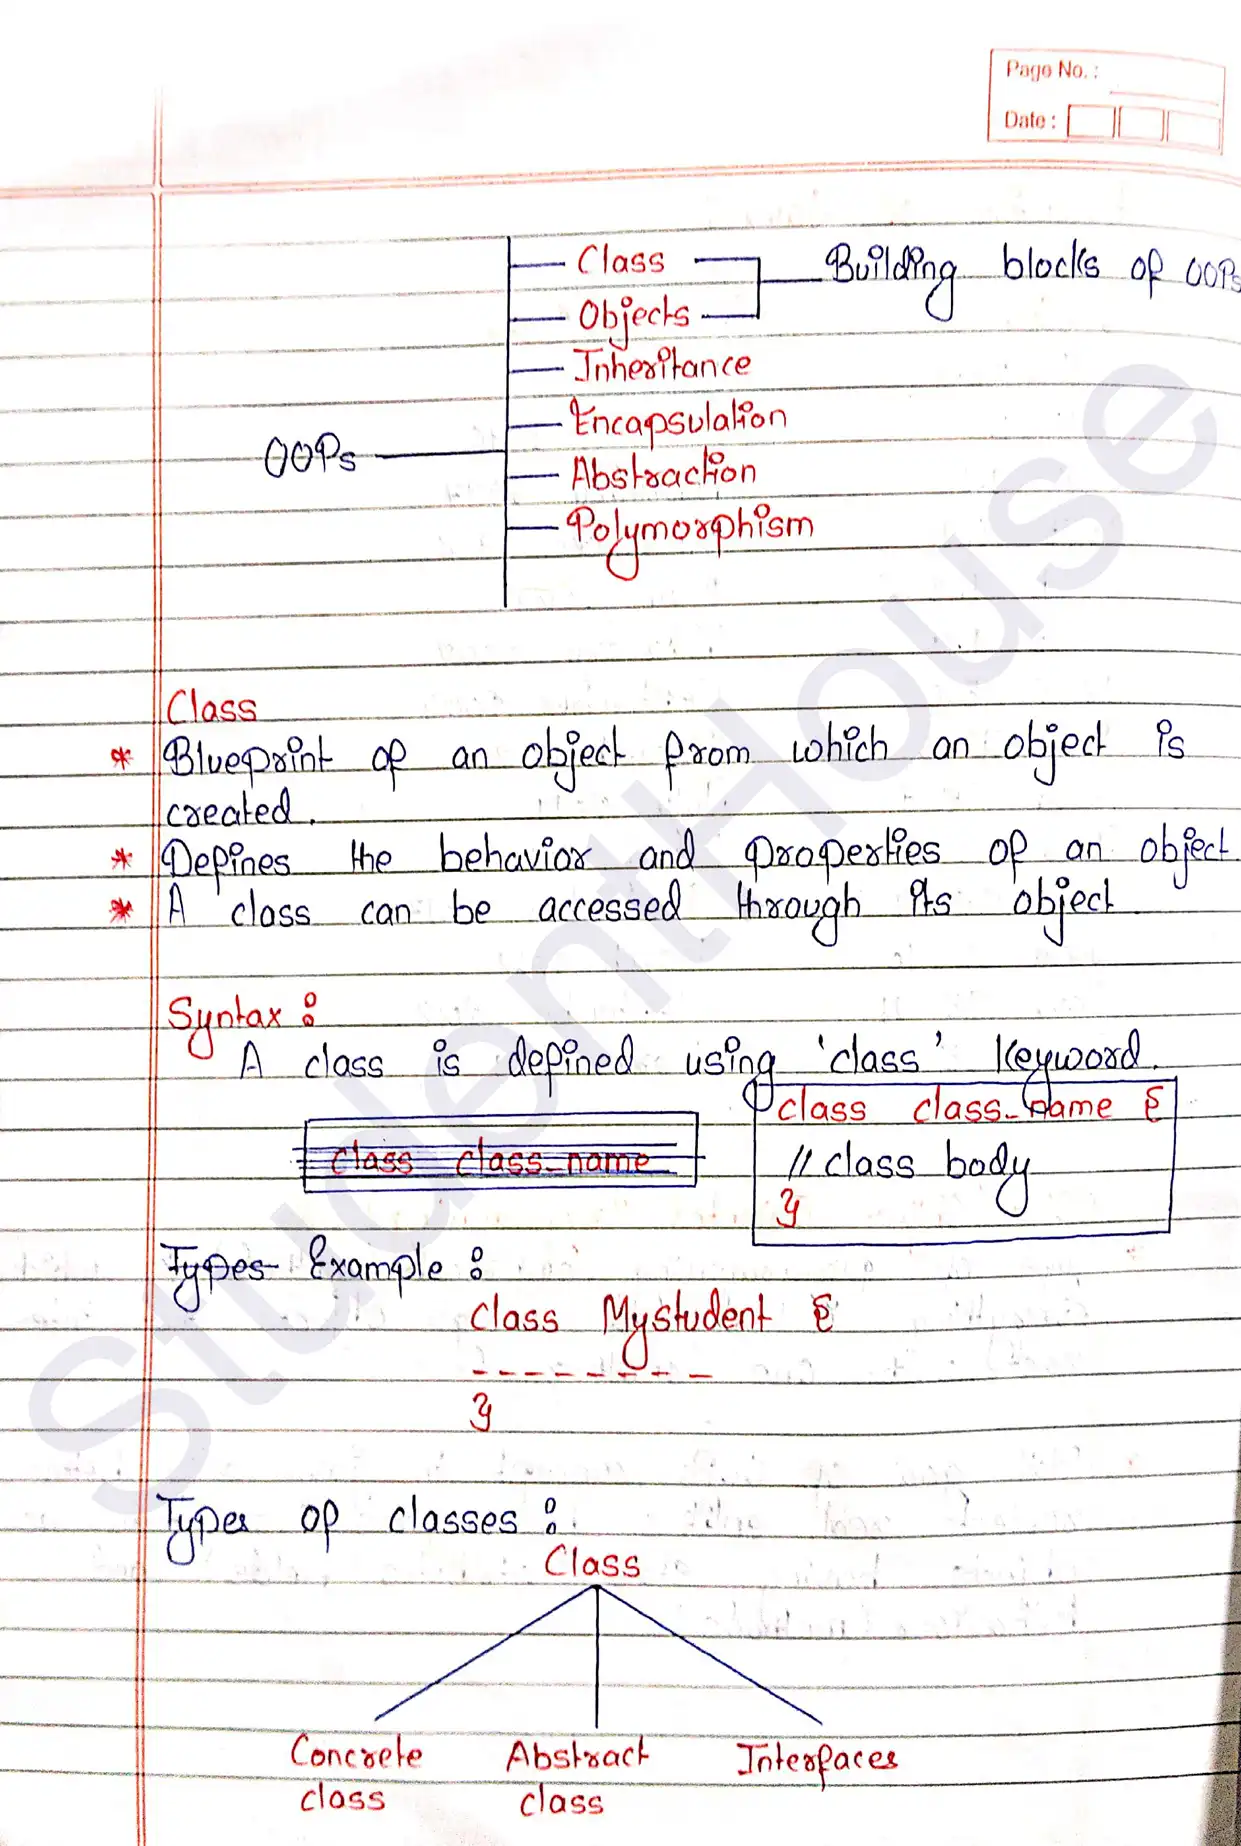 Page No. :
Date :
Class
Building blocks of OOPs
Objects
Inheritance
Encapsulation
OOPs
Abstraction
Polymorphism
Class
* Blueprint of an object from which an object is
created.
* Defines the behavior and properties of an object
* A class can be accessed through its object
Syntax :
A class is defined using 'class' keyword.
class class_name {
class class_name
// class body
}
Types Example :
class Mystudent {
- - - - - - - - -
}
Types of classes :
Class
Concrete class
Abstract class
Interfaces
StudentHouse